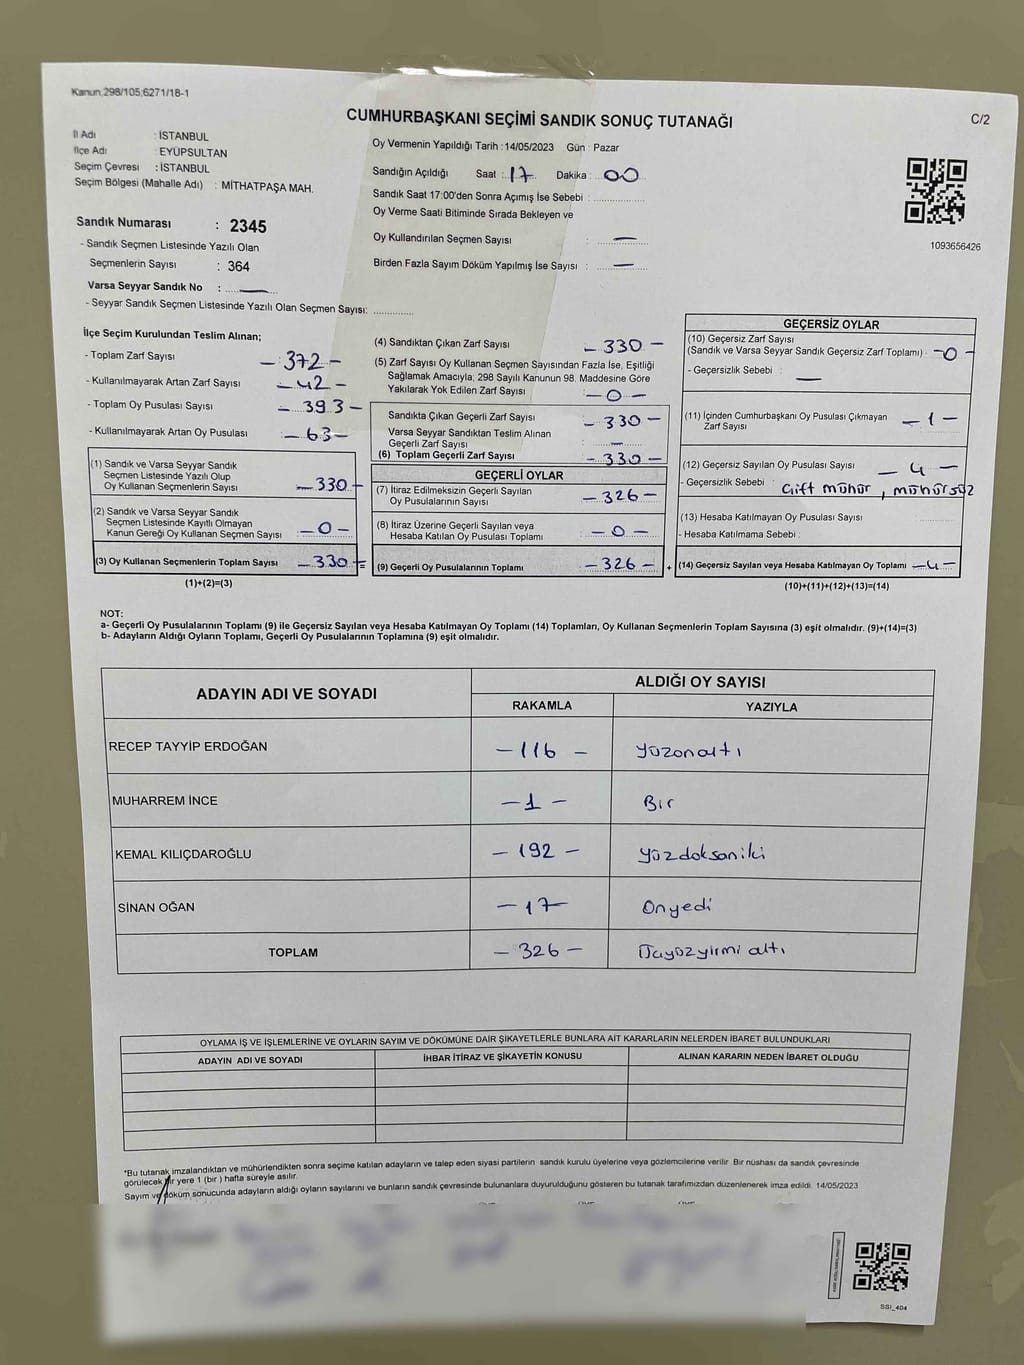 Kanun.298/105;6271/18-1
CUMHURBAŞKANI SEÇİMİ SANDIK SONUÇ TUTANAĞI
C/2
İl Adı : İSTANBUL
İlçe Adı : EYÜPSULTAN
Seçim Çevresi : İSTANBUL
Seçim Bölgesi (Mahalle Adı) : MİTHATPAŞA MAH.
Sandık Numarası : 2345
- Sandık Seçmen Listesinde Yazılı Olan
Seçmenlerin Sayısı : 364
Varsa Seyyar Sandık No : —
- Seyyar Sandık Seçmen Listesinde Yazılı Olan Seçmen Sayısı:
Oy Vermenin Yapıldığı Tarih : 14/05/2023 Gün : Pazar
Sandığın Açıldığı Saat : 17 Dakika : 00
Sandık Saat 17:00'den Sonra Açımış İse Sebebi :
Oy Verme Saati Bitiminde Sırada Bekleyen ve
Oy Kullandırılan Seçmen Sayısı : —
Birden Fazla Sayım Döküm Yapılmış İse Sayısı : —
1093656426
İlçe Seçim Kurulundan Teslim Alınan;
- Toplam Zarf Sayısı – 372 –
- Kullanılmayarak Artan Zarf Sayısı – 42 –
- Toplam Oy Pusulası Sayısı – 393 –
- Kullanılmayarak Artan Oy Pusulası – 63 –
(1) Sandık ve Varsa Seyyar Sandık
Seçmen Listesinde Yazılı Olup
Oy Kullanan Seçmenlerin Sayısı – 330 –
(2) Sandık ve Varsa Seyyar Sandık
Seçmen Listesinde Kayıtlı Olmayan
Kanun Gereği Oy Kullanan Seçmen Sayısı – 0 –
(3) Oy Kullanan Seçmenlerin Toplam Sayısı – 330 =
(1)+(2)=(3)
(4) Sandıktan Çıkan Zarf Sayısı – 330 –
(5) Zarf Sayısı Oy Kullanan Seçmen Sayısından Fazla İse, Eşitliği
Sağlamak Amacıyla; 298 Sayılı Kanunun 98. Maddesine Göre
Yakılarak Yok Edilen Zarf Sayısı – 0 –
Sandıkta Çıkan Geçerli Zarf Sayısı – 330 –
Varsa Seyyar Sandıktan Teslim Alınan
Geçerli Zarf Sayısı : —
(6) Toplam Geçerli Zarf Sayısı – 330 –
GEÇERLİ OYLAR
(7) İtiraz Edilmeksizin Geçerli Sayılan
Oy Pusulasının Sayısı – 326 –
(8) İtiraz Üzerine Geçerli Sayılan veya
Hesaba Katılan Oy Pusulası Toplamı – 0 –
(9) Geçerli Oy Pusulalarının Toplamı – 326 – +
GEÇERSİZ OYLAR
(10) Geçersiz Zarf Sayısı
(Sandık ve Varsa Seyyar Sandık Geçersiz Zarf Toplamı) – 0 –
- Geçersizlik Sebebi : —
(11) İçinden Cumhurbaşkanı Oy Pusulası Çıkmayan
Zarf Sayısı – 1 –
(12) Geçersiz Sayılan Oy Pusulası Sayısı – 4 –
- Geçersizlik Sebebi : Çift mühür, mühürsüz
(13) Hesaba Katılmayan Oy Pusulası Sayısı
- Hesaba Katılmama Sebebi :
(14) Geçersiz Sayılan veya Hesaba Katılmayan Oy Toplamı – 4 –
(10)+(11)+(12)+(13)=(14)
NOT:
a- Geçerli Oy Pusulalarının Toplamı (9) ile Geçersiz Sayılan veya Hesaba Katılmayan Oy Toplamı (14) Toplamları, Oy Kullanan Seçmenlerin Toplam Sayısına (3) eşit olmalıdır. (9)+(14)=(3)
b- Adayların Aldığı Oyların Toplamı, Geçerli Oy Pusulalarının Toplamına (9) eşit olmalıdır.
ADAYIN ADI VE SOYADI
ALDIĞI OY SAYISI
RAKAMLA YAZIYLA
RECEP TAYYİP ERDOĞAN – 116 – yüzonaltı
MUHARREM İNCE – 1 – Bir
KEMAL KILIÇDAROĞLU – 192 – yüzdoksaniki
SİNAN OĞAN – 17 – Onyedi
TOPLAM – 326 – Üçyüzyirmi altı
OYLAMA İŞ VE İŞLEMLERİNE VE OYLARIN SAYIM VE DÖKÜMÜNE DAİR ŞİKAYETLERLE BUNLARA AİT KARARLARIN NELERDEN İBARET BULUNDUKLARI
ADAYIN ADI VE SOYADI İHBAR İTİRAZ VE ŞİKAYETİN KONUSU ALINAN KARARIN NEDEN İBARET OLDUĞU
*Bu tutanak imzalandıktan ve mühürlendikten sonra seçime katılan adayların ve talep eden siyasi partilerin sandık kurulu üyelerine veya gözlemcilerine verilir. Bir nüshası da sandık çevresinde
görülecek bir yere 1 (bir) hafta süreyle asılır.
Sayım ve döküm sonucunda adayların aldığı oyların sayılarını ve bunların sandık çevresinde bulunanlara duyurulduğunu gösteren bu tutanak tarafımızdan düzenlenerek imza edildi. 14/05/2023
SSI_404